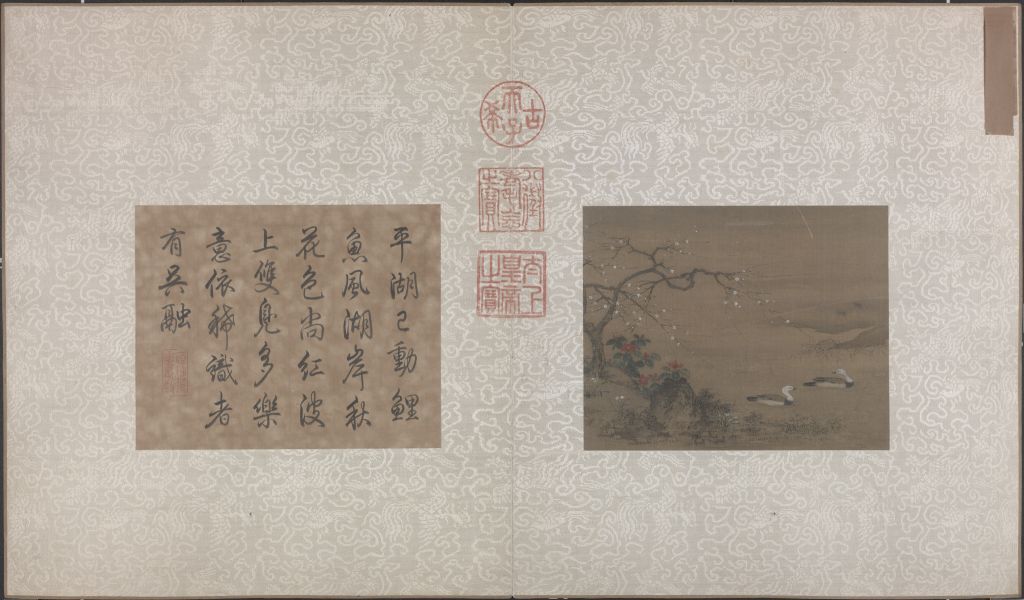 古希天子
八徵
耄念
之寶
太上
皇帝
之寶
平湖已動鯉
魚風湖岸秋
花色尚紅波
上雙鳧多樂
意依稀識者
有吳融